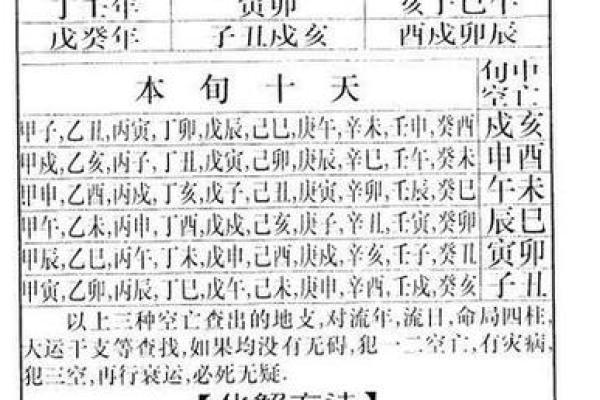 丁壬年 寅卯 亥子巳午
戊癸年 子丑戌亥 酉戌卯辰
本旬十天 旬中空亡
甲子,乙丑,丙寅,丁卯,戊辰,己巳,庚午,辛未,壬申,癸酉 戌亥
甲戌,乙亥,丙子,丁丑,戊寅,己卯,庚辰,辛巳,壬午,癸未 申酉
甲申,乙酉,丙戌,丁亥,戊子,己丑,庚寅,辛卯,壬辰,癸巳 午未
甲午,乙未,丙申,丁酉,戊戌,己亥,庚子,辛丑,壬寅,癸卯 辰巳
甲辰,乙巳,丙午,丁未,戊申,己酉,庚戌,辛亥,壬子,癸丑 寅卯
甲寅,乙卯,丙辰,丁巳,戊午,己未,庚申,辛酉,壬戌,癸亥 子丑
以上三种空亡查出的地支,对流年,流日,命局四柱,
大运干支等查找,如果均没有无碍,犯一二空亡,有灾病,
犯三空,再行衰运,必死无疑.
【化解方法】